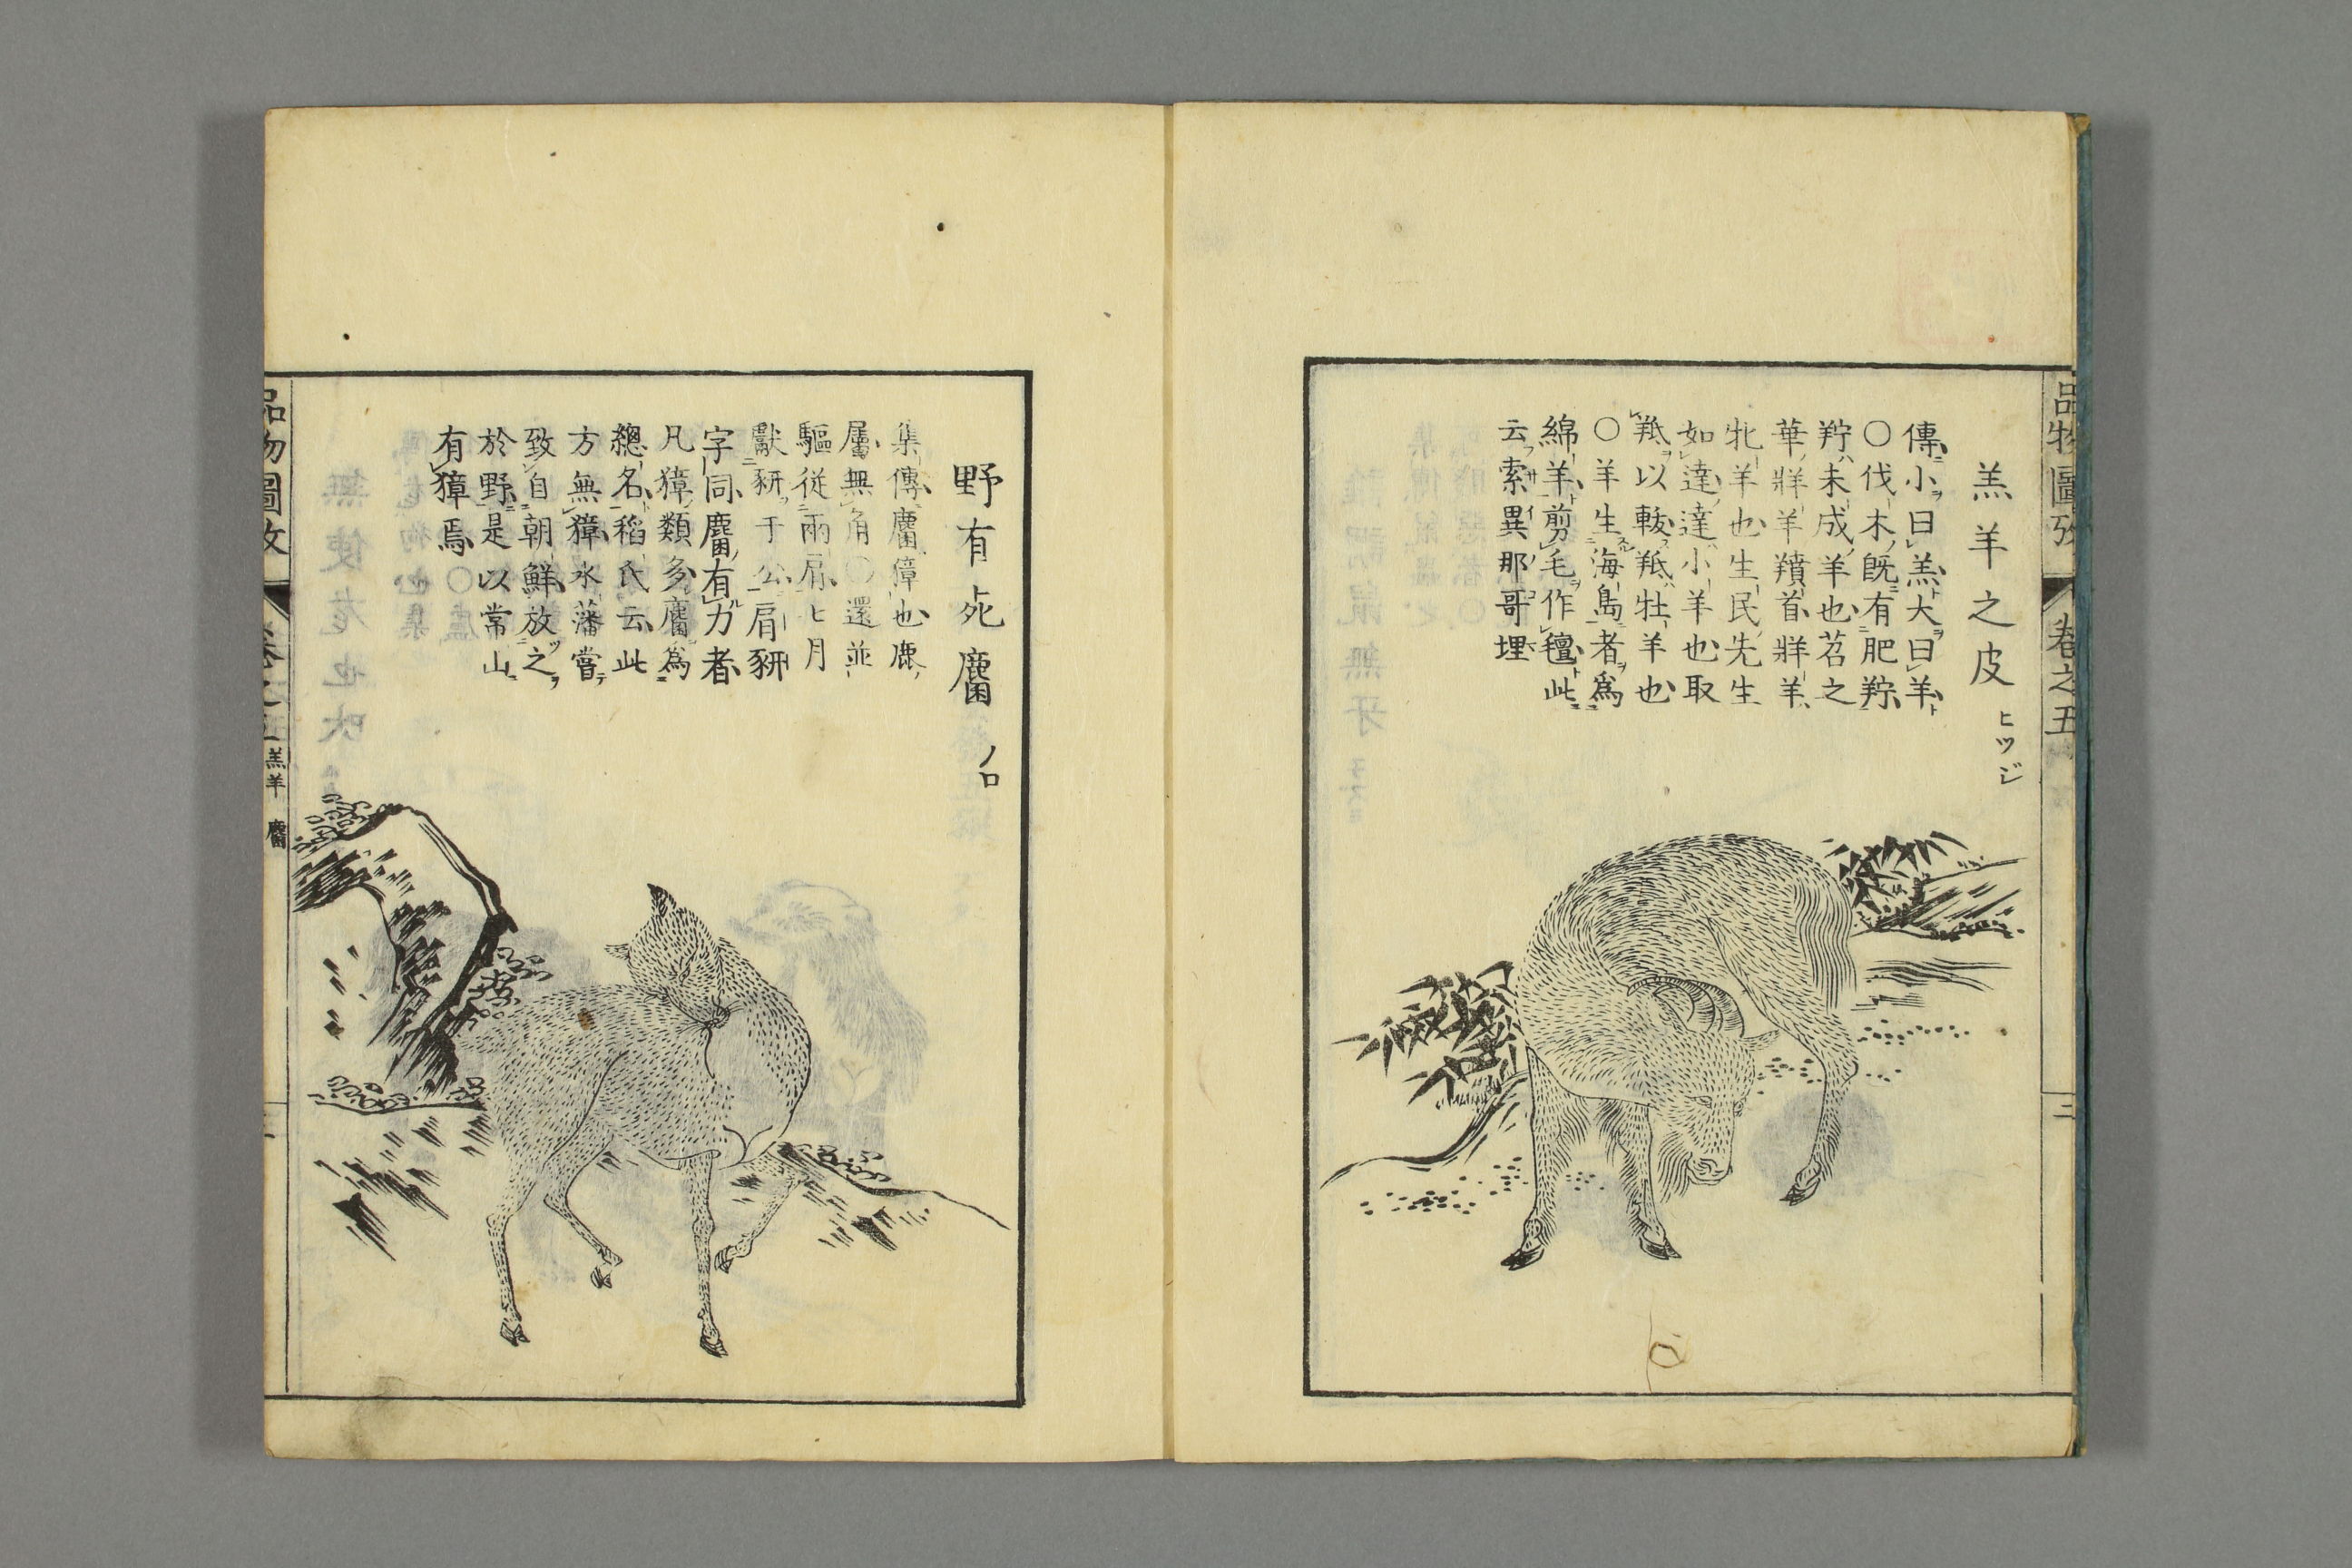 品物圖攷
卷之五
三
羔羊之皮 ヒツジ
傳小曰羔大曰羊
○伐木既有肥羜
羜未成羊也苕之
華牂羊羵首牂羊
牝羊也生民先生
如達達小羊也取
羝以軷羝牡羊也
○羊生海島者爲
綿羊剪毛作氊此
云索異那哥埋
野有死麕 ノロ
集傳麕獐也鹿
屬無角○還並
驅從兩肩七月
獻豜于公肩豜
字同麕有力者
凡獐類多麕爲
總名稻氏云此
方無獐水藩嘗
致自朝鮮放之
於野是以常山
有獐焉
品物圖攷
卷之五
羔羊 麕